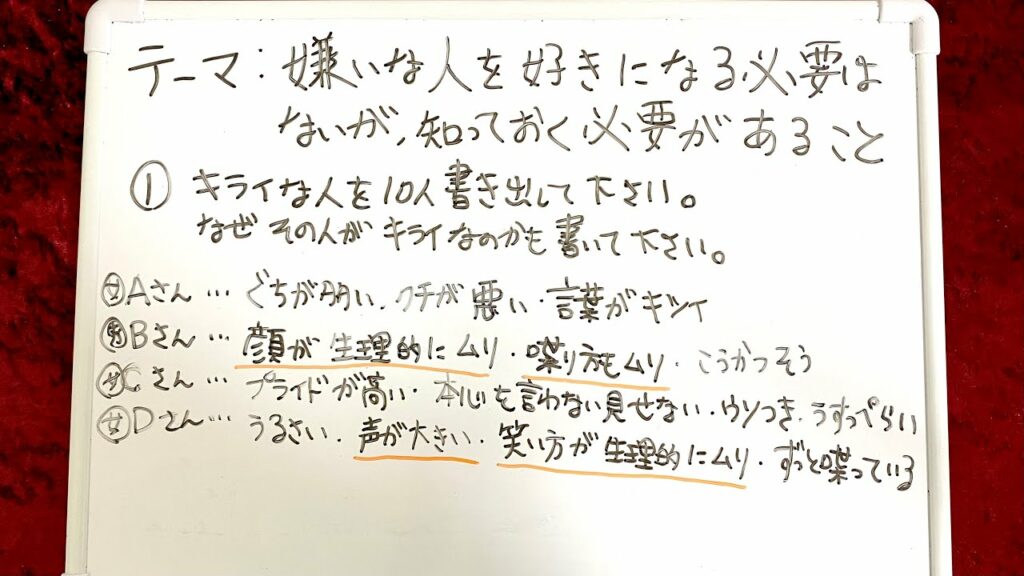 テーマ：嫌いな人を好きになる必要は
ないが、知っておく必要があること
① キライな人を10人書き出して下さい。
なぜその人がキライなのかも書いて下さい。
㊛Aさん… ぐちが多い、クチが悪い・言葉がキツイ
㊚Bさん… 顔が生理的にムリ・喋り方もムリ・こうかつそう
㊛Cさん… プライドが高い・本心を言わない見せない・ウソつき・うすっぺらい
㊛Dさん… うるさい・声が大きい・笑い方が生理的にムリ・ずっと喋っている